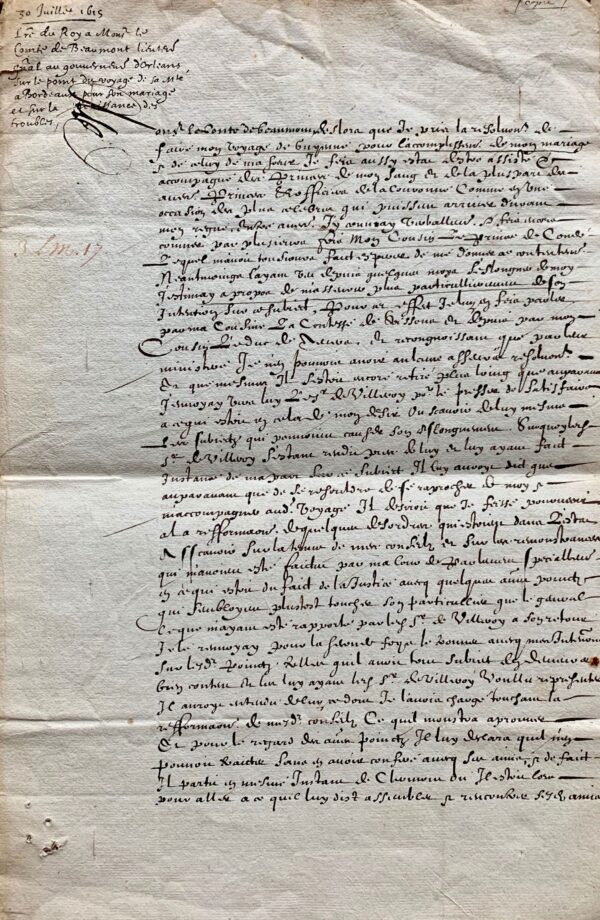 30 Juillet 1615
Lre du Roy a Monsr le
Comte de Beaumont lieuten
gnal au gouvernemt d'Orleans
sur le point du voyage de sa Mté
a Bordeaux pour son mariage
et sur la naissance des
troubles
copie
3 L M. 17
Monsr le Conte de beaumont deslora que Je pris la resolution de
faire mon voyage de guyenne pour l'accomplissemt de mon mariage
& de celuy de ma soeur Je feis aussy estat destre assisté &
accompagné des Princes de mon sang et de la plus part des
autres Princes & officiers de la Couronne Comme en une
occasion des plus celebres qui puissent arriver durant
mon regne
convier par plusieurs fois Mon Cousin Le Prince de Condé
Lequel m'avoit tousiours faict esperer de me donner ce contentemt
Neantmoings layant veu depuis quelques moys Esloigné de moy
Jestimay a propos de m'asseurer plus particullierement de son
Intention sur ce subiect, Pour cet effect Je luy en feis parler
par ma Cousine La Contesse de Soissons et depuis par mon
Cousin Le duc de Nevers, et recongnoissant que par leur
ministere Je n'en pouvois avoir aucune asseurée resolution
Et que mesmes Il sestoit encore retiré plus loing que auparavant
J'envoyay vers luy Le Sr de Villeroy pour le presser de satisfaire
a ce qui estoit en cela de mon desir Ou scavoir de luy mesme
Les subiects qui pouvoient causer son esloignement. Surquoy led.
Sr de Villeroy s'estant rendu pres de luy et luy ayant faict
Instance de ma part sur ce subiect Il luy auroyt dit que
auparavant que de se resouldre de se raprocher de moy &
m'accompagner aud. voyage Il desiroit que Je feisse pourveoir
a la refformaon de quelques desordres qui estoient dans l'estat
Asscavoir sur la tenue de mes conseilz et sur les remonstrances
qui m'avoient esté faictes par ma Cour de Parlement specialement
en ce qui estoit du faict de la Justice avecq quelques autres poincts
qui sembloyent plustost toucher son particullier que le general
Ce que m'ayant esté rapporté par led. Sr de Villeroy a son retour
Je le renvoyay pour la seconde foys le trouver avecq mes Intentions
sur lesd. poincts. Telles quil avoit tout subiect d'en demeurer
bien content Et les luy ayant led. Sr de Villeroy voullu representer
Il auroyt entendu de luy ce dont Je l'avois chargé touchant la
refformaon de mesd. conseilz Ce quil monstra aprouver
Et pour le regard des autres poinctz Il luy declara quil n'en
pouvoit traicter sans en avoir conferé avecq ses amis, & de faict
Il partit en mesme Instant de Clermont ou Il estoit lors
pour aller a ce quil luy dist assembler & rencontrer sesd. amis